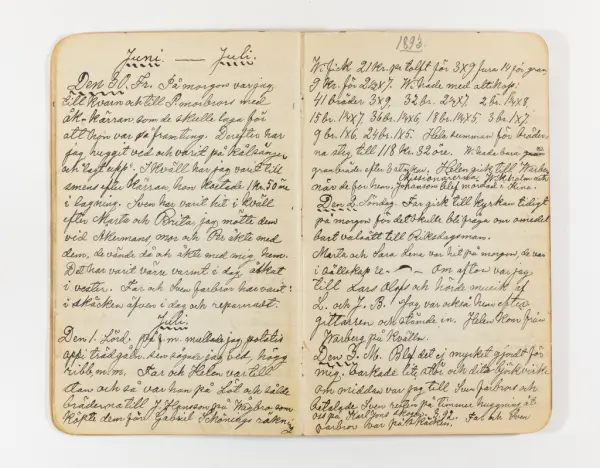 Juni. — Juli.
Den 30. Fr. På morgon var jag
till kvarn och till Pmorbrors med
åk-kärran som de skulle laga för
att hon var på framtung. Derefter har
jag huggit ved och varit på kålsängen
och lagt upp. I kväll har jag varit till
smens efter kärran, hon kostade 1 Kr. 50 öre
i lagning. Sven har varit hit i kväll
efter Marta och Brita, jag mötte dem
vid Akermans, mor och Per åkte med
dem, de vände då och åkte med mig hem.
Det har varit värre varmt i dag åskat
i vester. Far och Sven farbror har varit
i skäcken äfven i dag och reparerat.
Juli.
Den 1. Lörd. på f.m. mullade jag potatis
uppi trädgåln, sen sågade jag ved, högg
ribb, m.m. Far och Helm var till
stan och så var han på Löt och sålde
bräderna till J. Hansson på Wågbro som
köpte dem för Gabriel Schönings räkn-
1893.
W. fick 21 kr. per tolft för 3X9 fura 14 för gran
9 kr. för 2½X7. W. hade med altihop.
41 bräder 3X9, 32 br. 2½X7. 2 br. 14X8,
15 br. 14X7 36 br. 14X6, 18 br. 14X5 3 br. 1X7,
9 br. 1X6, 24 br. 1X5. Hela summan för bräder
na steg till 118 kr. 32 öre. W. hade bara
granbräder efter 3 stycken. Helm gick till
missionärerna, Wikholm och
när de for hem, Johanson blef mördad i Kina.
Den 2. Söndag. Far gick till kyrkan tidigt
på morgon för det skulle bli fråga om omedel
bart valsätt till Riksdagsman.
Marta och Sara Lena var hit på morgon, de var
i sällskap te. — Om afton var jag
till Lars Olofs och hörde musik af
L. och J. B. Jag var också hem efter
gittarren och stände in. Helm kom från
Warberg på kvälln.
Den 3. M. Blef det ej mycket gjordt för
mig, barkade lite stör och dito
om middan var jag till Sven farbrors och
betalade Sven resten på timmer huggning åt
oss på Karlfors skogen 3,92. Far och Sven
farbror var på skäcken.